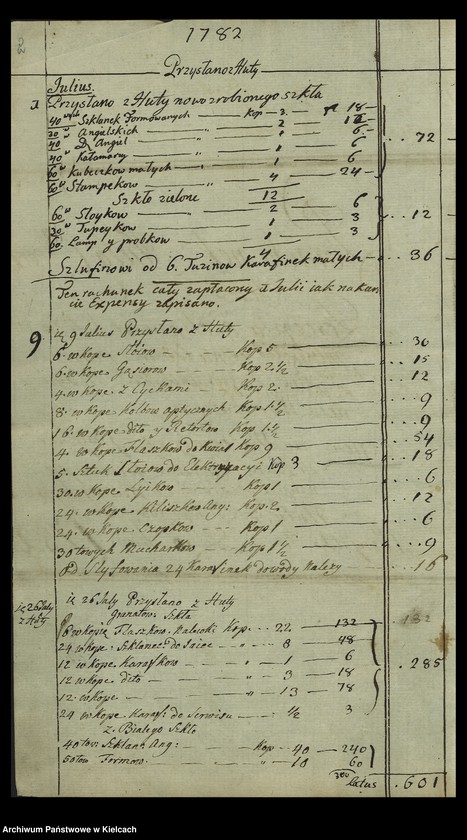 1782
Przysłano z Huty
Julius.
1 Przysłano z Huty nowo zrobionego szkła
40 Szklanek Formowanych — Kop — 3. — 18
Angielskich — " — 2 — 12
40 D. Angiel — " — 1 — 6
40 Kałamarzy — 1 — 6 .. 72
60 Kubeczkow małych — " — 4 — 24
60 Stampekow — " — 12
Szkło zielone
60 Słoykow — 2 — 6
30 Tupeykow — 1 — 3 .. 12
60 Lamp y probkow — 1 — 3
4
Szlufierzowi od 6. Tuzinow Karafinek małych — 36
Ten rachunek cały zapłacony z Julii iak na kar
cie Expensy zapisano.
9 ie 9 Julius Przysłano z Huty
6. w Kope Słoiow — Kop 5 — 30
6. w Kope Gąsiorow — Kop 2 1/2 — 15
4. w Kope z Cyckami — Kop 2. — 12
8. w Kope Kolbow aptycznych Kop 1 1/2 — 9
16. w Kope dito y Retortow Kop 1 1/2 — 9
4. w Kope Flaszkow do Kwiat Kop 9 — 54
5. Sztuk Słoiow do Elektryzacyi Kop 3 — 18
30. w Kope Lyikow — Kop 1 — 6
24. w Kope Kiliszkow Ang: Kop 2 — 12
24. w Kope Czopkow — Kop 1 — 6
30 towych Macharkow — Kop 1 1/2 — 9
Od Slyfowania 24 Karafinek do wody należy — 16
ie 26 July z Huty
ie 26 July Przysłano z Huty
Granatow. Szkła 132
6 w Kopie Flaszkow. Nalewki Kop. — 22 — 132
24 w Kope: Szklanec. do Saice — " — 8 — 48
12 w Kope Karafkow — " — 1 — 6 . 285
12 w Kope dito — " — 3 — 18
12. w Kope — — " — 13 — 78
24 w Kope Karaf: do Serwisu — 1/2 — 3
z. Białego Szkła
40 tow: Szklanc. Ang: — Kop — 40 — 240
50 tow Formow. — " — 10 — 60
300
latus . 601
Archiwum Państwowe w Kielcach